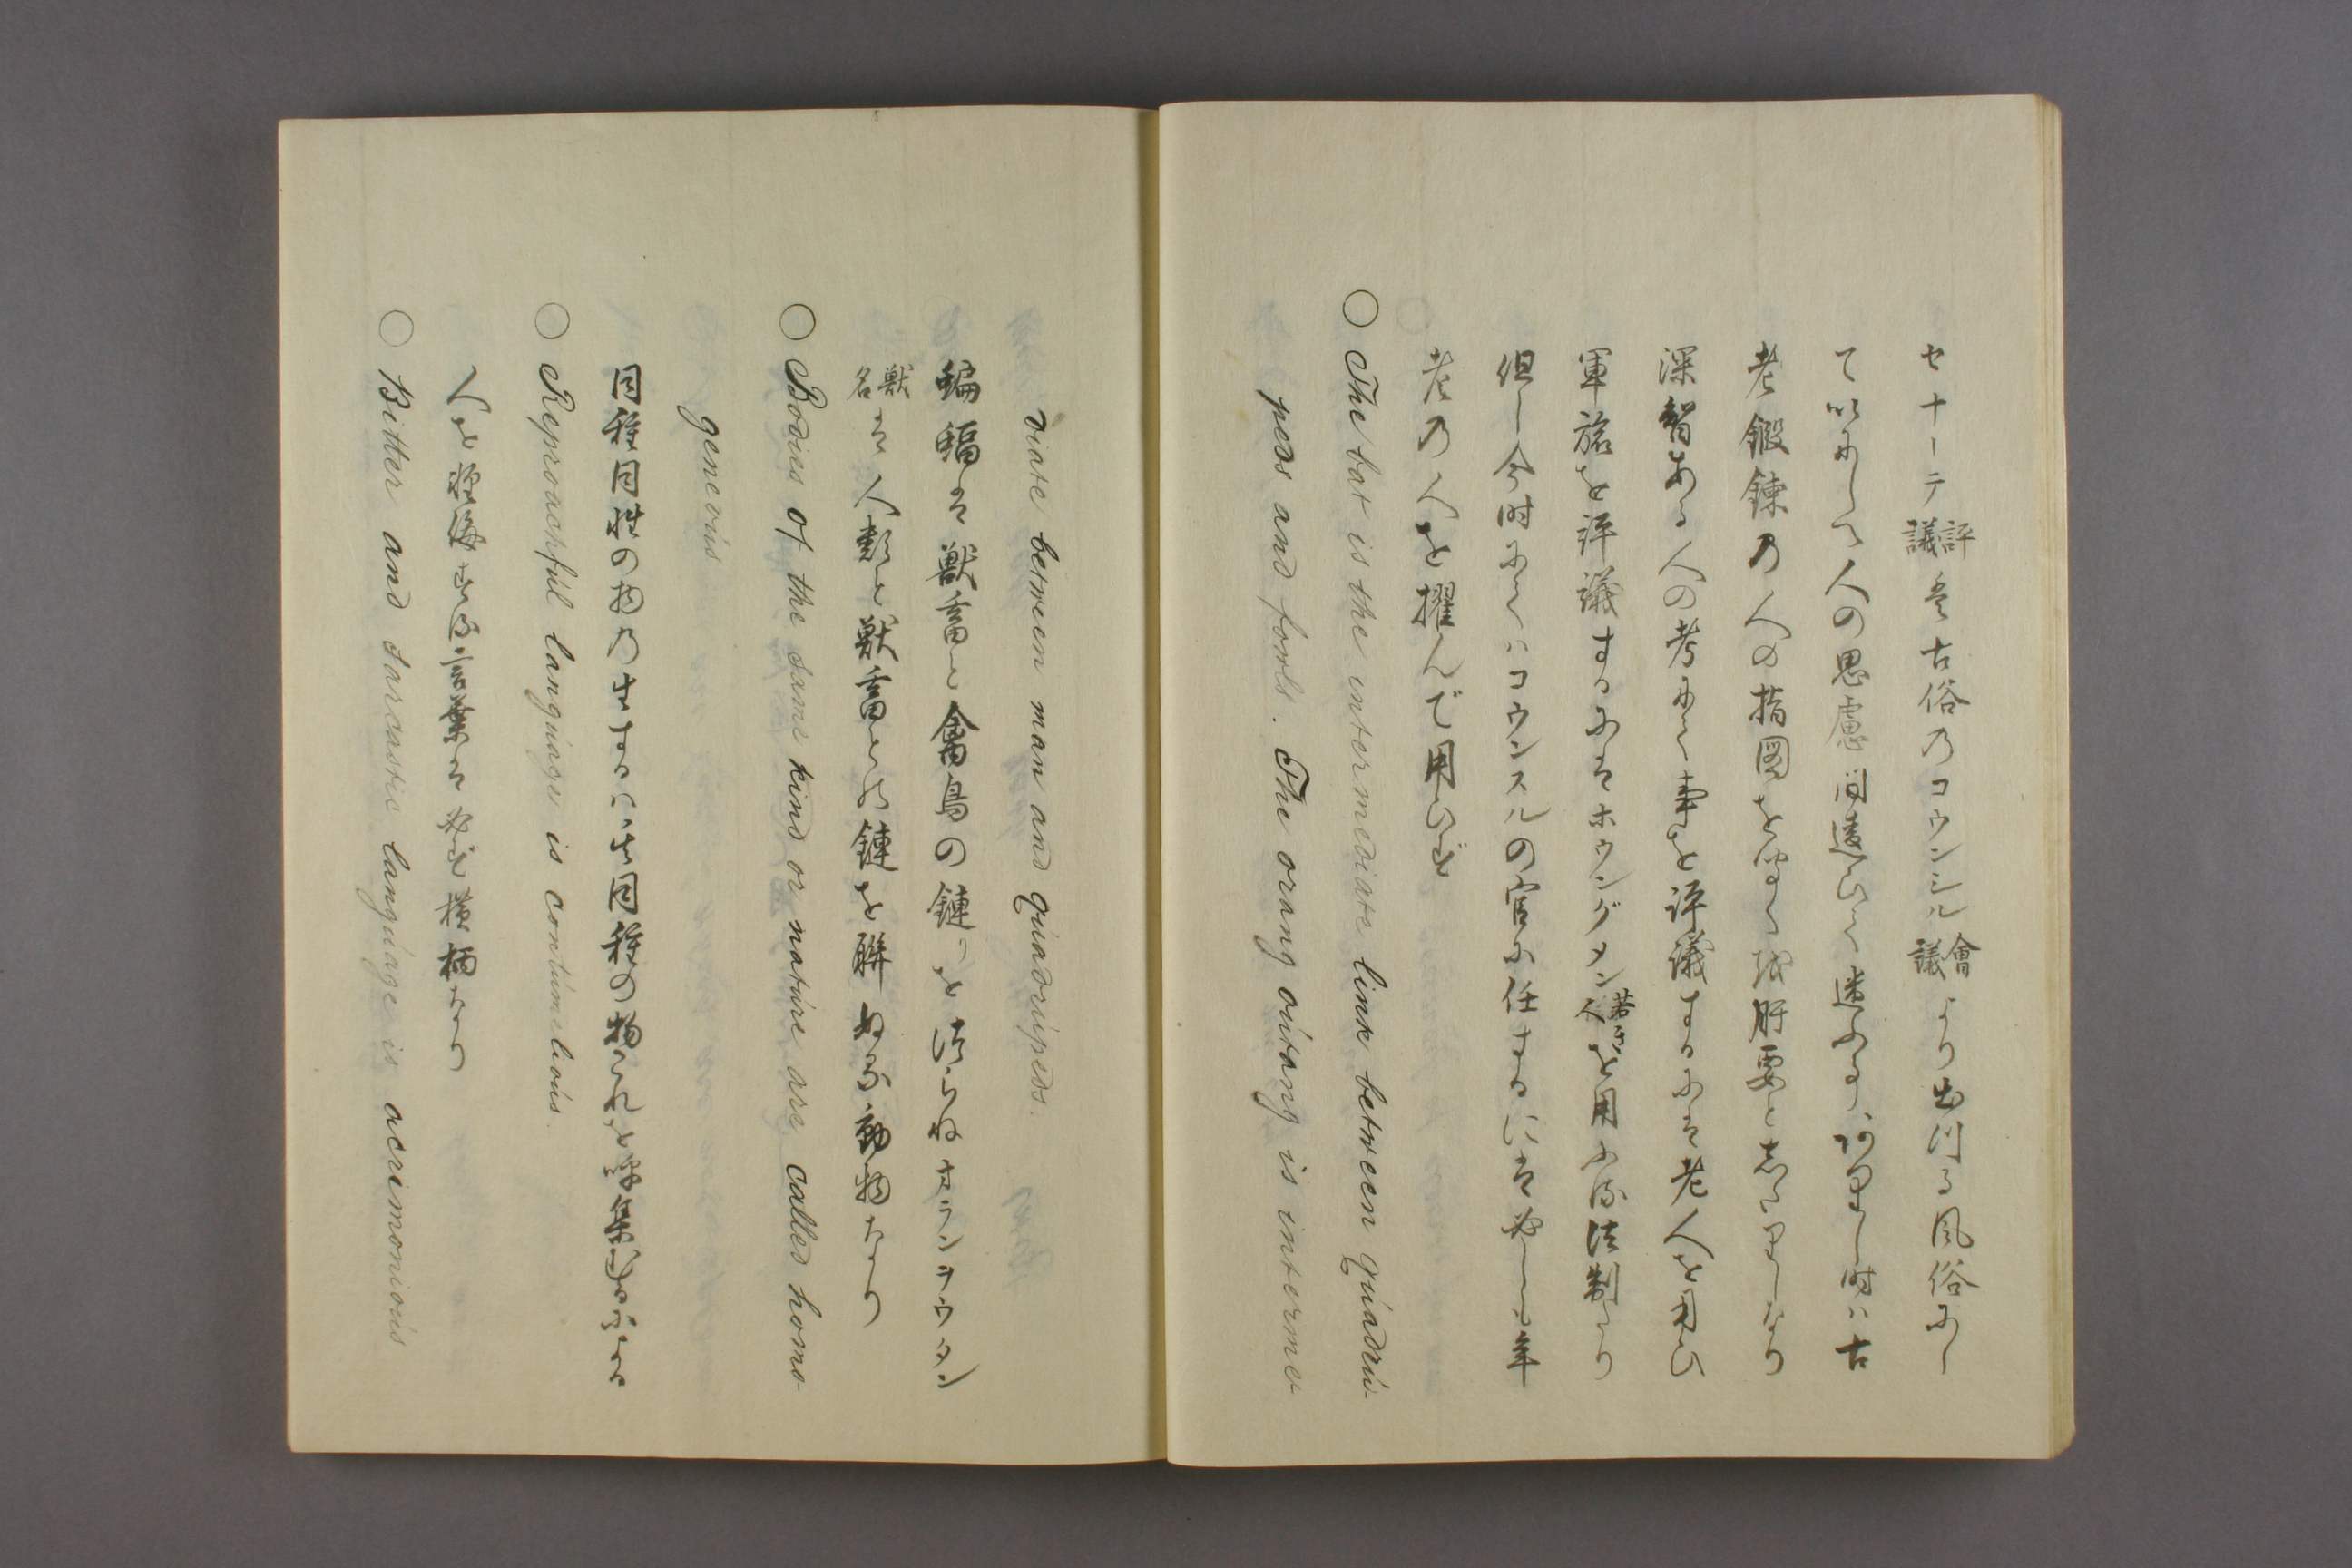 セナーテ評議は古俗乃コウンシル會議より出川る風俗にし
て以にしへ人の思慮間違ひて迷ふる時ハ古
老鍛錬乃人の指図を肝要と志なり
深智ある人の考にて事を評議するには老人を用ひ
軍旅を評議するにはホウングメン若き人を用ふる法制なり
但し今時にてハコウンスルの官に任するには必しも年
老乃人を擢んで用ひず
○ The bat is the intermediate link between quadru-
peds and fowls. The orang outang is interme-
diate between man and quadrupeds.
蝙蝠は獣畜と禽鳥の鏈りを法らねオランヲウタン
獣名は人類と獣畜との鏈を聯ぬる動物なり
○ Bodies of the same kind or nature are called homo-
geneous
同種同性の物乃生するハ其同種の物これを呼集むるによる
○ Reproachful language is contumelious.
人を軽侮する言葉は必ず横柄なり
○ Bitter and sarcastic language is acrimonious